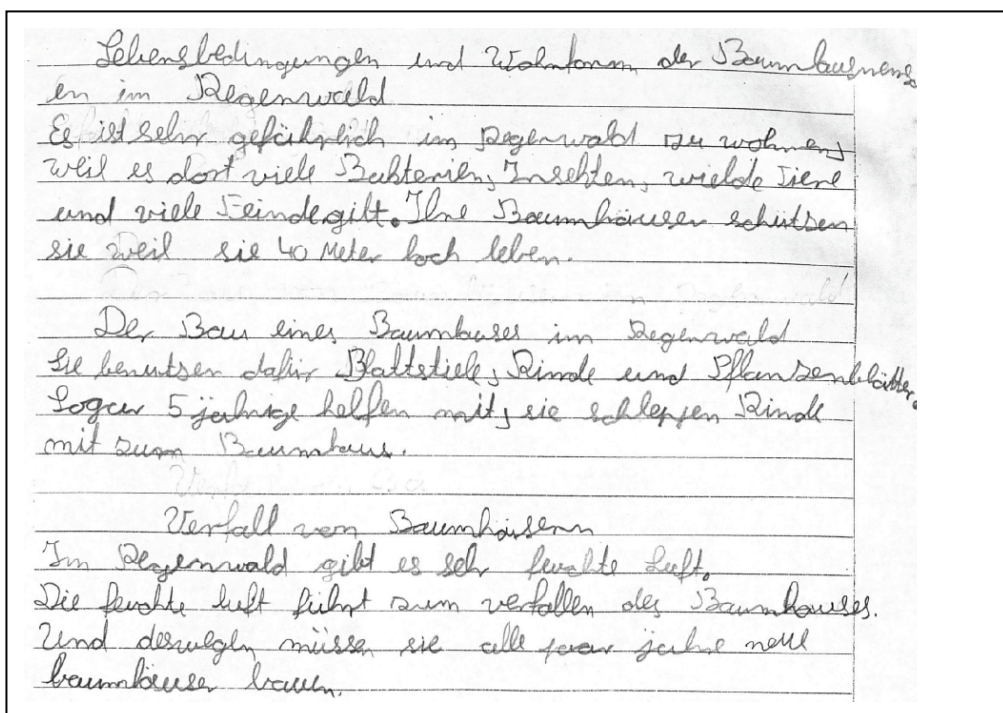 Lebensbedingungen und Wohnform der Baummens
en im Regenwald
Es ist sehr gefährlich im Regenwald zu wohnen,
weil es dort viele Bakterien, Insekten, wielde Tiere
und viele Feinde gibt. Ihre Baumhäuser schützen
sie weil sie 40 Meter hoch leben.
Der Bau eines Baumhauses im Regenwald
Sie benutzen dafür Blattstiele, Rinde und Pflanzenblätter.
Sogar 5 jährige helfen mit, sie schleppen Rinde
mit zum Baumhaus.
Verfall von Baumhäusern
Im Regenwald gibt es sehr feuchte Luft.
Die feuchte luft führt zum verfallen des Baumhauses.
Und deswegen müssen sie alle paar jahre neue
baumhäuser bauen.